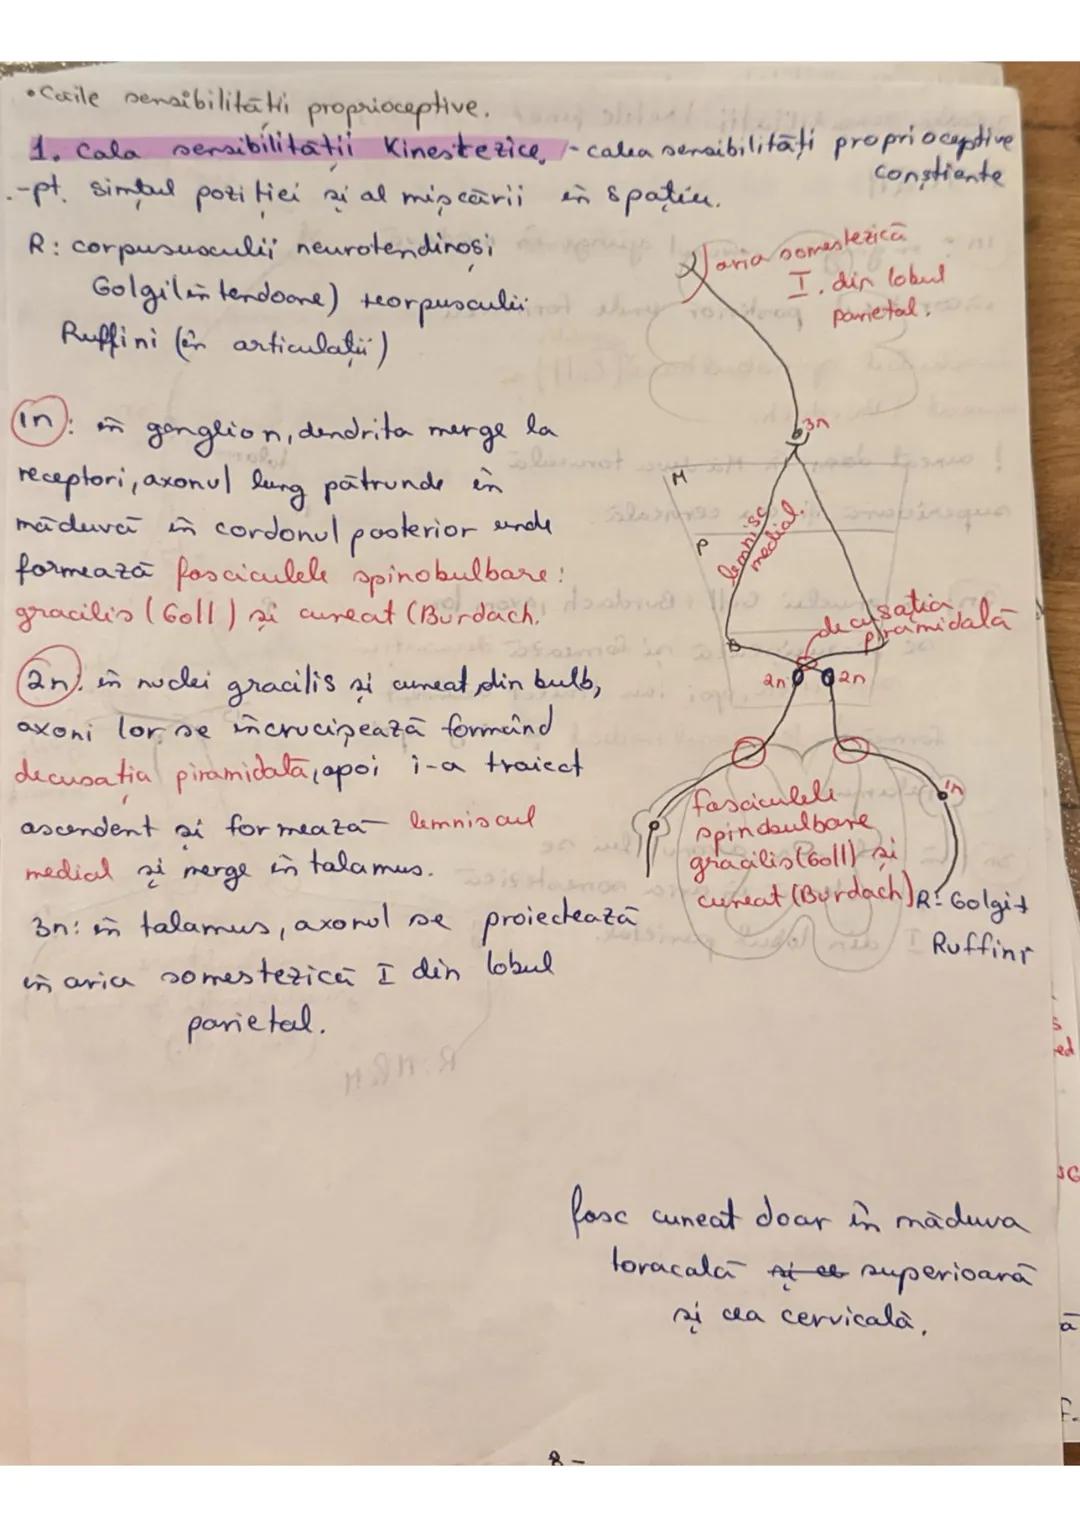 •Căile sensibilității proprioceptive.
1. Cala sensibilității Kinestezice, - calea sensibilități proprioceptive
conștiente
-pt. simțul poziției și al mișcării în spațiu.
R: corpususculii neurotendinosi
Golgi(în tendoane) +corpusculii
Ruffini (în articulații)
aria somestezică
I. din lobul
parietal.
1n: în ganglion, dendrita merge la
receptori, axonul lung pătrunde în
măduvă în cordonul posterior unde
formează fasciculele spinobulbare:
gracilis (Goll) și cuneat (Burdach.
2n: în nuclei gracilis și cuneat, din bulb,
axoni lor se încrucișează formând
decusația piramidată, apoi i-a traiect
ascendent și formează lemniscul
medial și merge în talamus.
3n: în talamus, axonul se proiectează
în aria somestezică I din lobul
parietal.
3n
M
P
lemnisc
medial.
B
decusația
piramidală
2n
2n
1n
fasciculele
spinobulbare
gracilis(Goll) și
cuneat (Burdach)
R: Golgi+
Ruffini
fasc cuneat doar în măduva
toracală superioară
și cea cervicală.
8 -